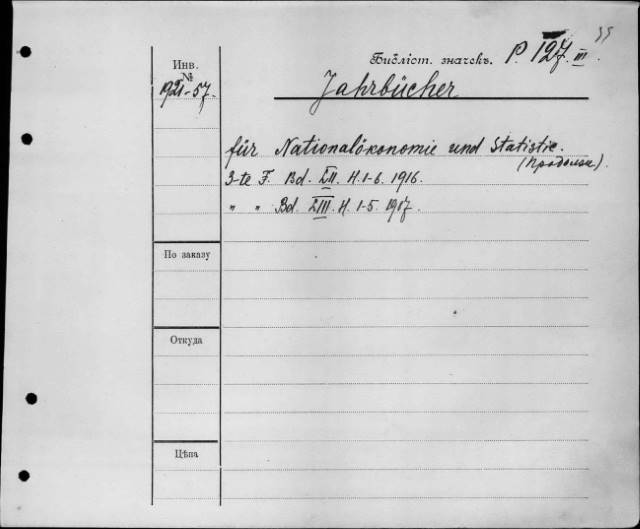 Инв.
№
1921-57.
Библіот. значекъ. P. 127 III
Jahrbücher
für Nationalökonomie und Statistic.
(Продолж.)
3-te F. Bd. LII. H. 1-6. 1916.
" " Bd. LIII. H. 1-5. 1917.
По заказу
Откуда
Цѣна